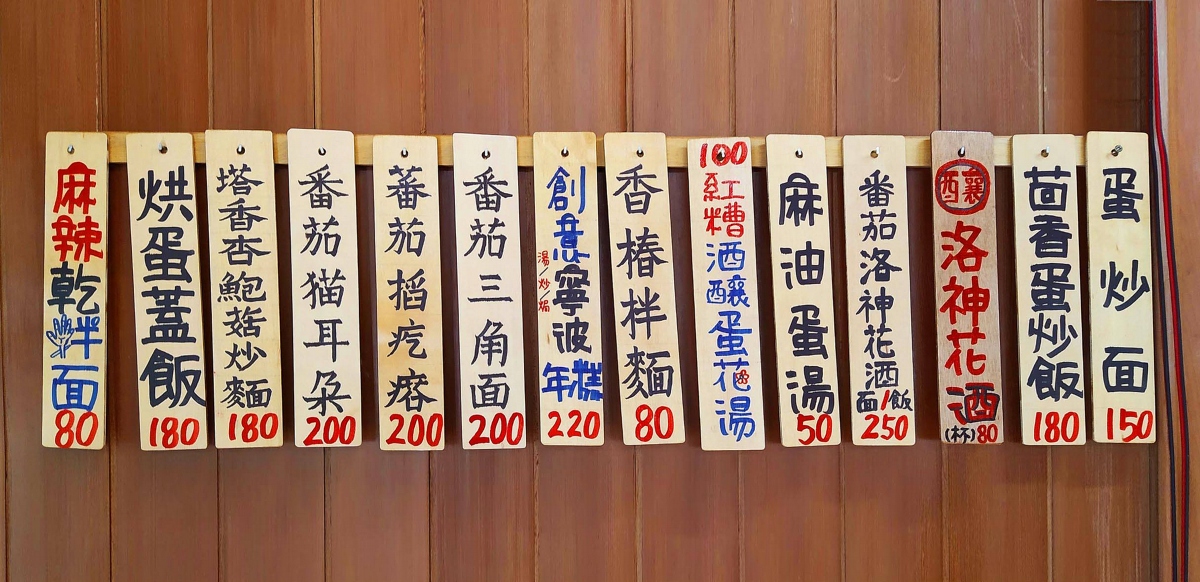 麻辣乾拌面
80
烘蛋蓋飯
180
塔香杏鮑菇炒麵
180
番茄猫耳朵
200
蕃茄搯疙瘩
200
番茄三角面
200
創意寧波年糕
湯/炒/焗
220
香椿拌麵
80
100
紅糟酒釀蛋花湯
麻油蛋湯
50
番茄洛神花酒
面/飯
250
釀
洛神花酒
(杯)80
茴香蛋炒飯
180
蛋炒面
150